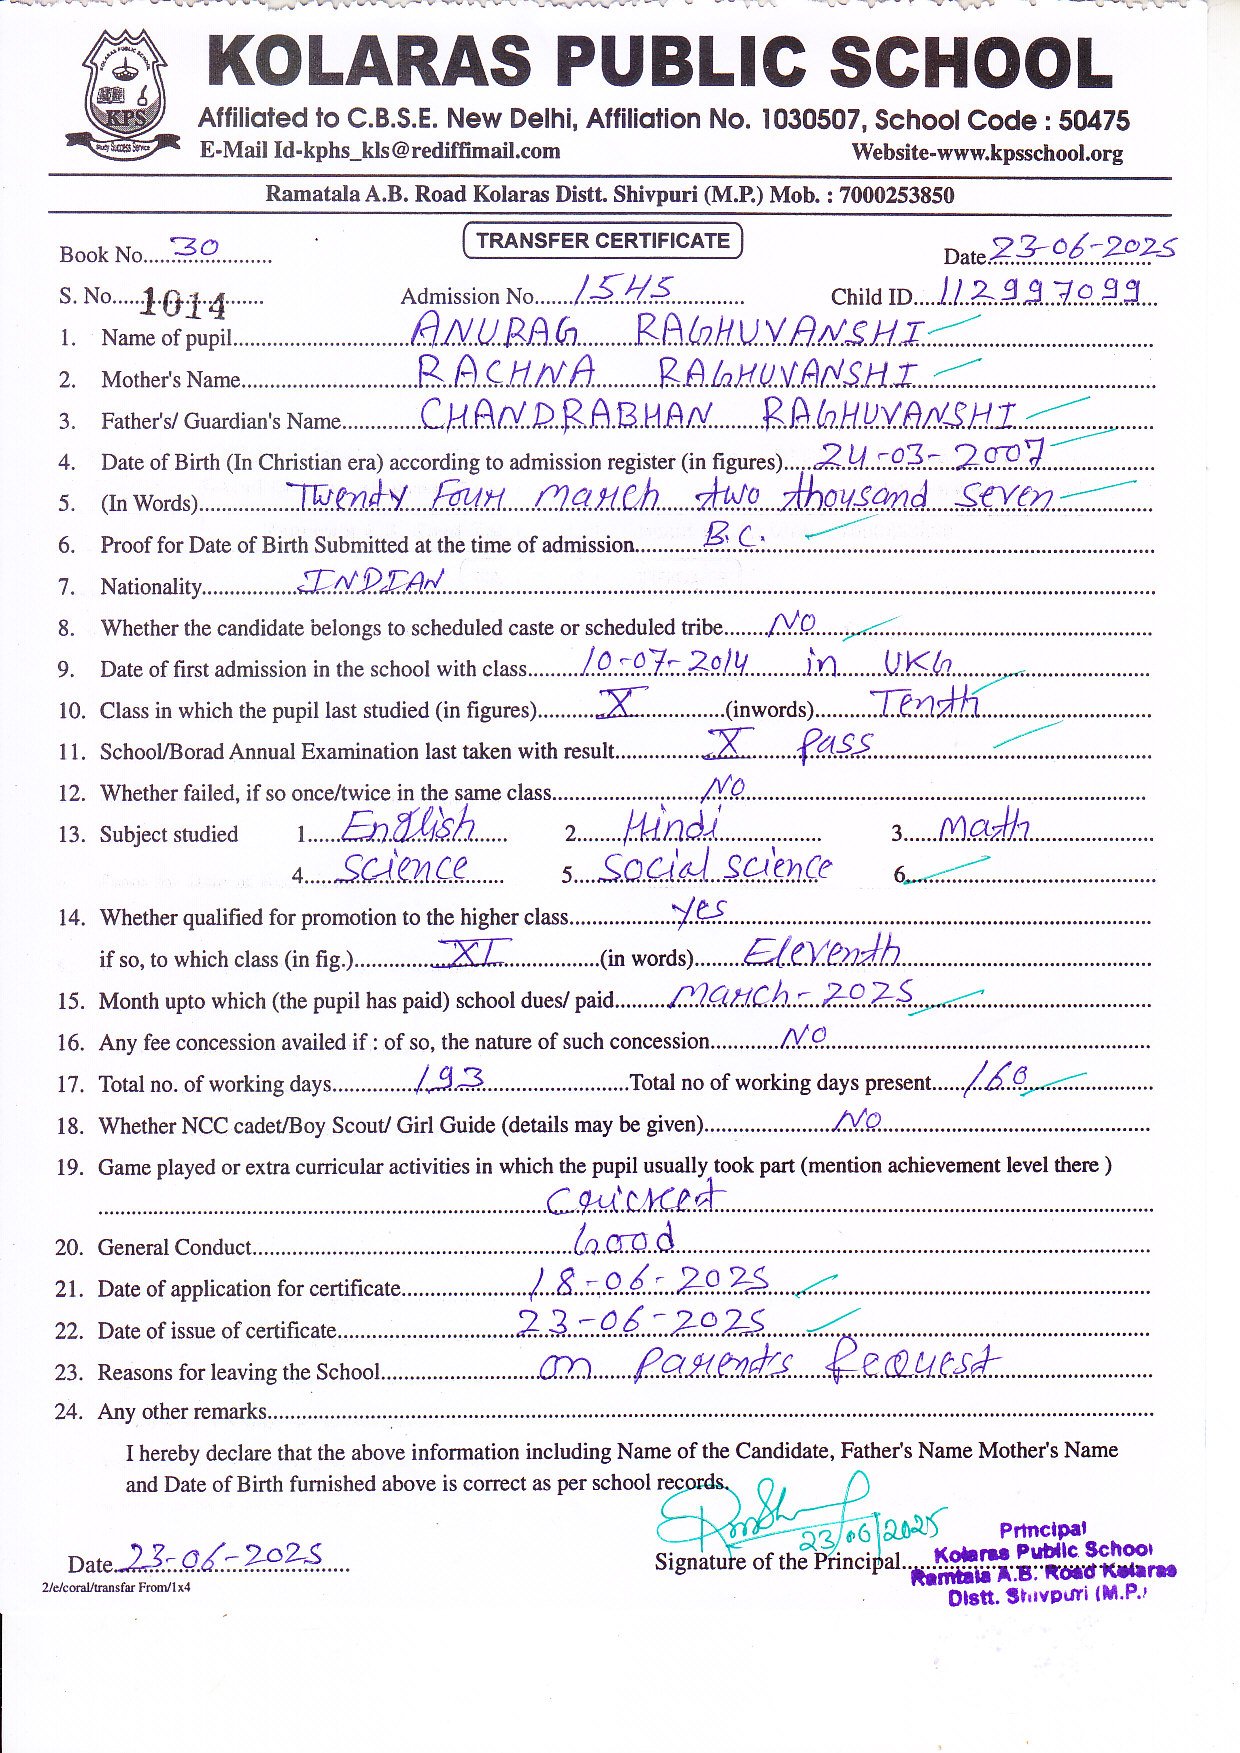 KOLARAS PUBLIC SCHOOL
KOLARAS PUBLIC SCHOOL
KPS
Study Success Service
Affiliated to C.B.S.E. New Delhi, Affiliation No. 1030507, School Code : 50475
E-Mail Id-kphs_kls@rediffimail.com Website-www.kpsschool.org
Ramatala A.B. Road Kolaras Distt. Shivpuri (M.P.) Mob. : 7000253850
TRANSFER CERTIFICATE
Book No. 30 Date 23-06-2025
S. No. 1014 Admission No. 1545 Child ID 112997099
1. Name of pupil ANURAG RAGHUVANSHI
2. Mother's Name RACHNA RAGHUVANSHI
3. Father's/ Guardian's Name CHANDRABHAN RAGHUVANSHI
4. Date of Birth (In Christian era) according to admission register (in figures) 24-03-2007
5. (In Words) Twenty Four March two thousand seven
6. Proof for Date of Birth Submitted at the time of admission B.C.
7. Nationality INDIAN
8. Whether the candidate belongs to scheduled caste or scheduled tribe NO
9. Date of first admission in the school with class 10-07-2014 in UKG
10. Class in which the pupil last studied (in figures) X (inwords) Tenth
11. School/Borad Annual Examination last taken with result X Pass
12. Whether failed, if so once/twice in the same class NO
13. Subject studied 1. English 2. Hindi 3. Math
4. Science 5. Social science 6.
14. Whether qualified for promotion to the higher class yes
if so, to which class (in fig.) XI (in words) Eleventh
15. Month upto which (the pupil has paid) school dues/ paid March-2025
16. Any fee concession availed if : of so, the nature of such concession NO
17. Total no. of working days 193 Total no of working days present 160
18. Whether NCC cadet/Boy Scout/ Girl Guide (details may be given) NO
19. Game played or extra curricular activities in which the pupil usually took part (mention achievement level there )
20. General Conduct Good
21. Date of application for certificate 18-06-2025
22. Date of issue of certificate 23-06-2025
23. Reasons for leaving the School on Parents Request
24. Any other remarks
I hereby declare that the above information including Name of the Candidate, Father's Name Mother's Name
and Date of Birth furnished above is correct as per school records.
23/06/2025
Date 23-06-2025 Signature of the Principal
Principal
Kolaras Public School
Ramtala A.B. Road Kolaras
Distt. Shivpuri (M.P.)
2/e/coral/transfar From/1x4